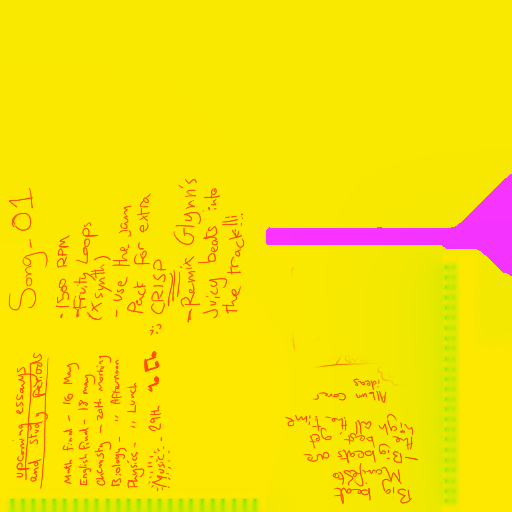 Song-01
-1500 RPM
-Fruity Loops
(X synth)
- Use the Jam
Pack for extra
CRISP
-Remix Glynn's
Juicy beats into
the track!!!
upcoming essays
and study periods
Math Final - 16 May
English Final - 18 may
Chemistry - 20th morning
Biology - " Afternoon
Physics - " Lunch
Music - 29th
Big beat
Manifesto
!Big beats are
the best, get
high all the time
Album cover
ideas